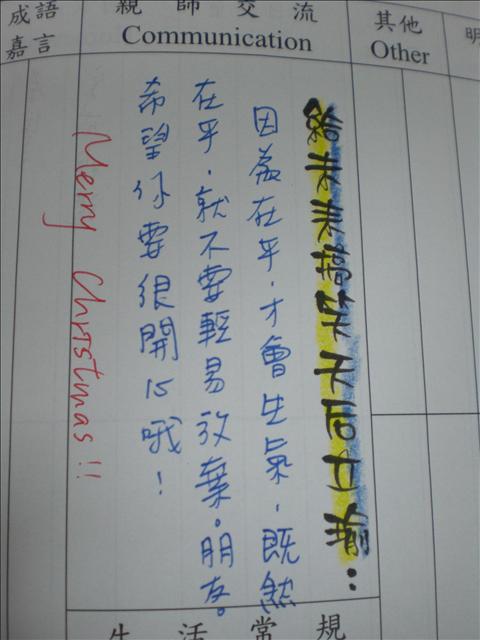 成語
嘉言
親師交流
Communication
其他
Other
明
給未來搞笑天后立瑜：
因為在乎，才會生氣，既然
在乎，就不要輕易放棄。朋友。
希望你要很開心哦！
Merry Christmas!!
生活常規